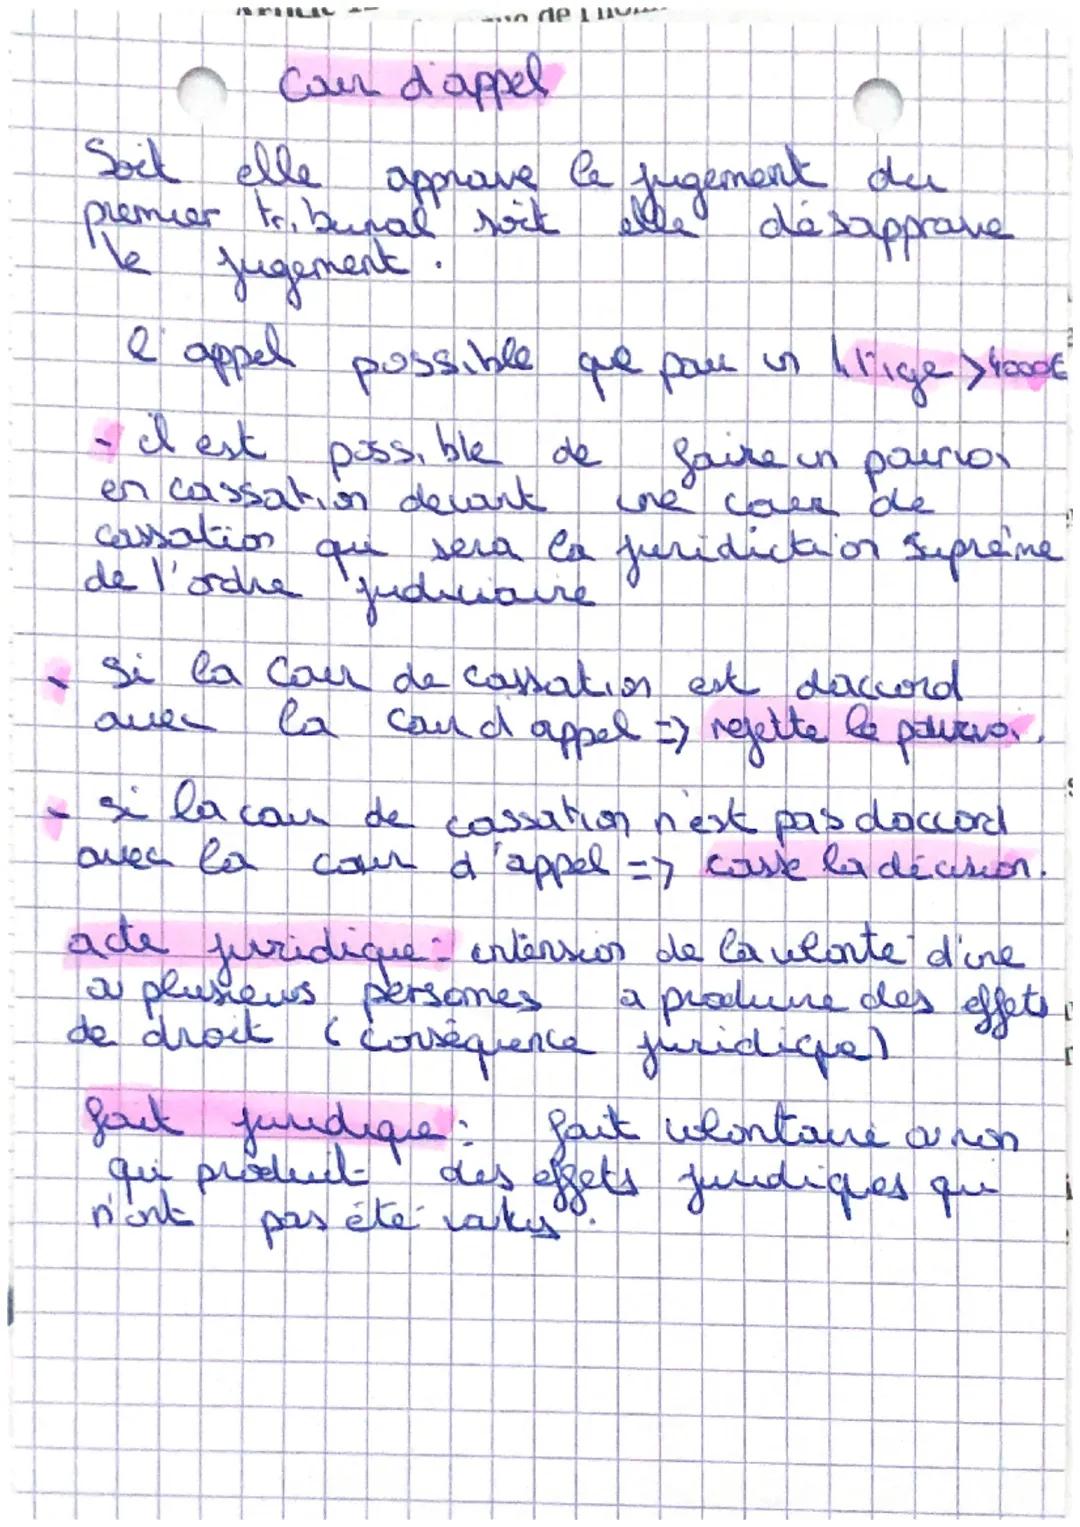 Cour d'appel
Soit elle approuve le jugement du
premier tribunal soit elle désapprouve
le jugement.
l'appel possible que pour un litige >4000€
- il est possible de faire un pourvoi
en cassation devant une cour de
cassation qui sera la juridiction suprême
de l'ordre judiciaire
- si la Cour de cassation est daccord
avec la cour d'appel => rejette le pourvoi.
- si la cour de cassation n'est pas daccord
avec la cour d'appel => casse la décision.
acte juridique : de la volonté d'une
ou plusieurs personnes a produire des effets
de droit (conséquence juridique)
fait juridique : fait volontaire ou non
qui produit des effets juridiques qui
n'ont pas été